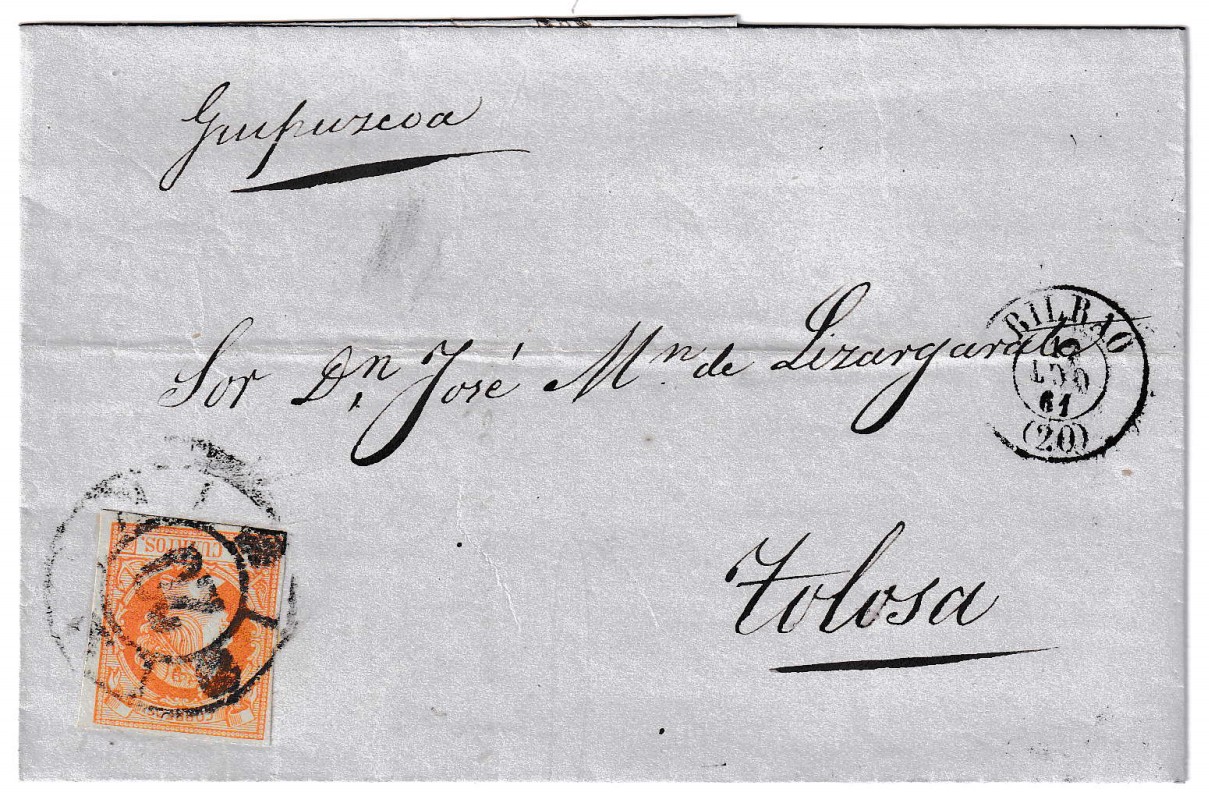 Guipuzcoa
Sor Dn. José Mn. de Lizargarate
Tolosa
BILBAO
61
(20)
CUARTOS.